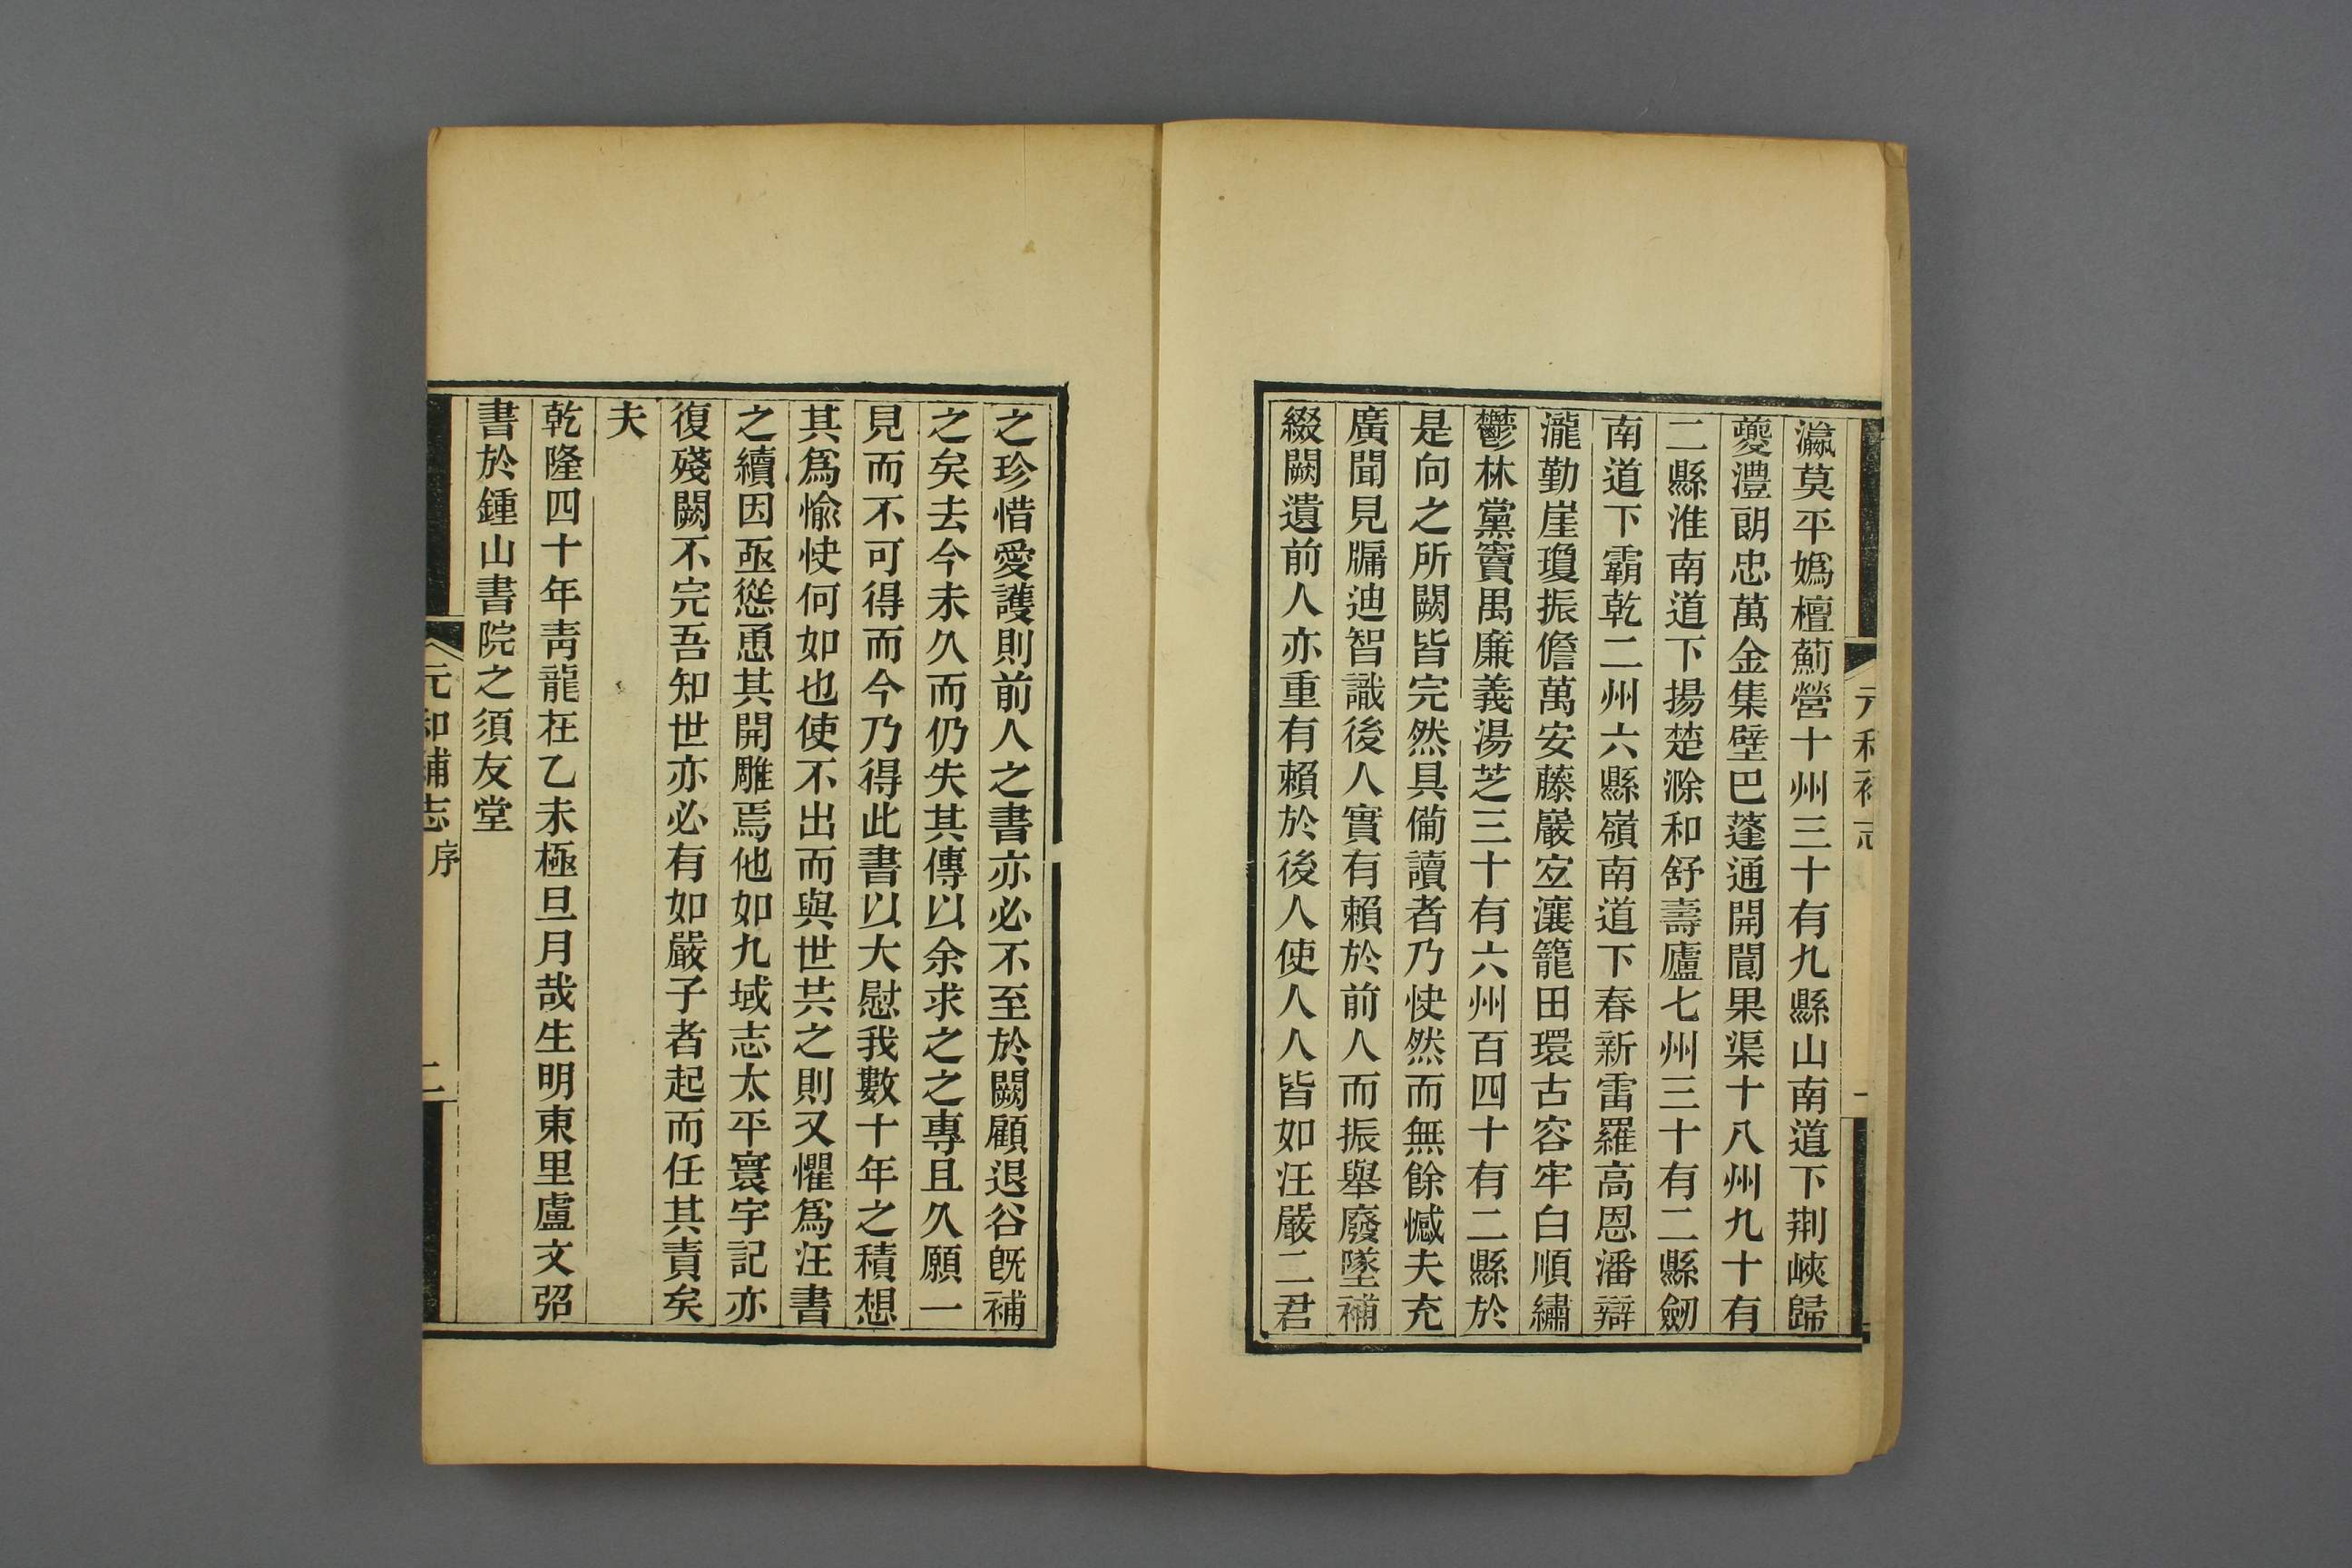 瀛莫平嬀檀薊營十州三十有九縣山南道下荆峽歸
夔澧朗忠萬金集壁巴蓬通開閬果渠十八州九十有
二縣淮南道下揚楚滁和舒壽廬七州三十有二縣劒
南道下霸乾二州六縣嶺南道下春新雷羅高恩潘辯
瀧勤崖瓊振儋萬安藤巖宐瀼籠田環古容牢白順繡
鬱林黨竇禺廉義湯芝三十有六州百四十有二縣於
是向之所闕皆完然具備讀者乃快然而無餘憾夫充
廣聞見牖迪智識後人實有賴於前人而振舉廢墜補
綴闕遺前人亦重有賴於後人使人人皆如汪嚴二君
元和補志
一
之珍惜愛護則前人之書亦必不至於闕顧退谷旣補
之矣去今未久而仍失其傳以余求之之專且久願一
見而不可得而今乃得此書以大慰我數十年之積想
其爲愉快何如也使不出而與世共之則又懼爲汪書
之續因亟慫恿其開雕焉他如九域志太平寰宇記亦
復殘闕不完吾知世亦必有如嚴子者起而任其責矣
夫
乾隆四十年靑龍在乙未極旦月哉生明東里盧文弨
書於鍾山書院之須友堂
元和補志 序
二